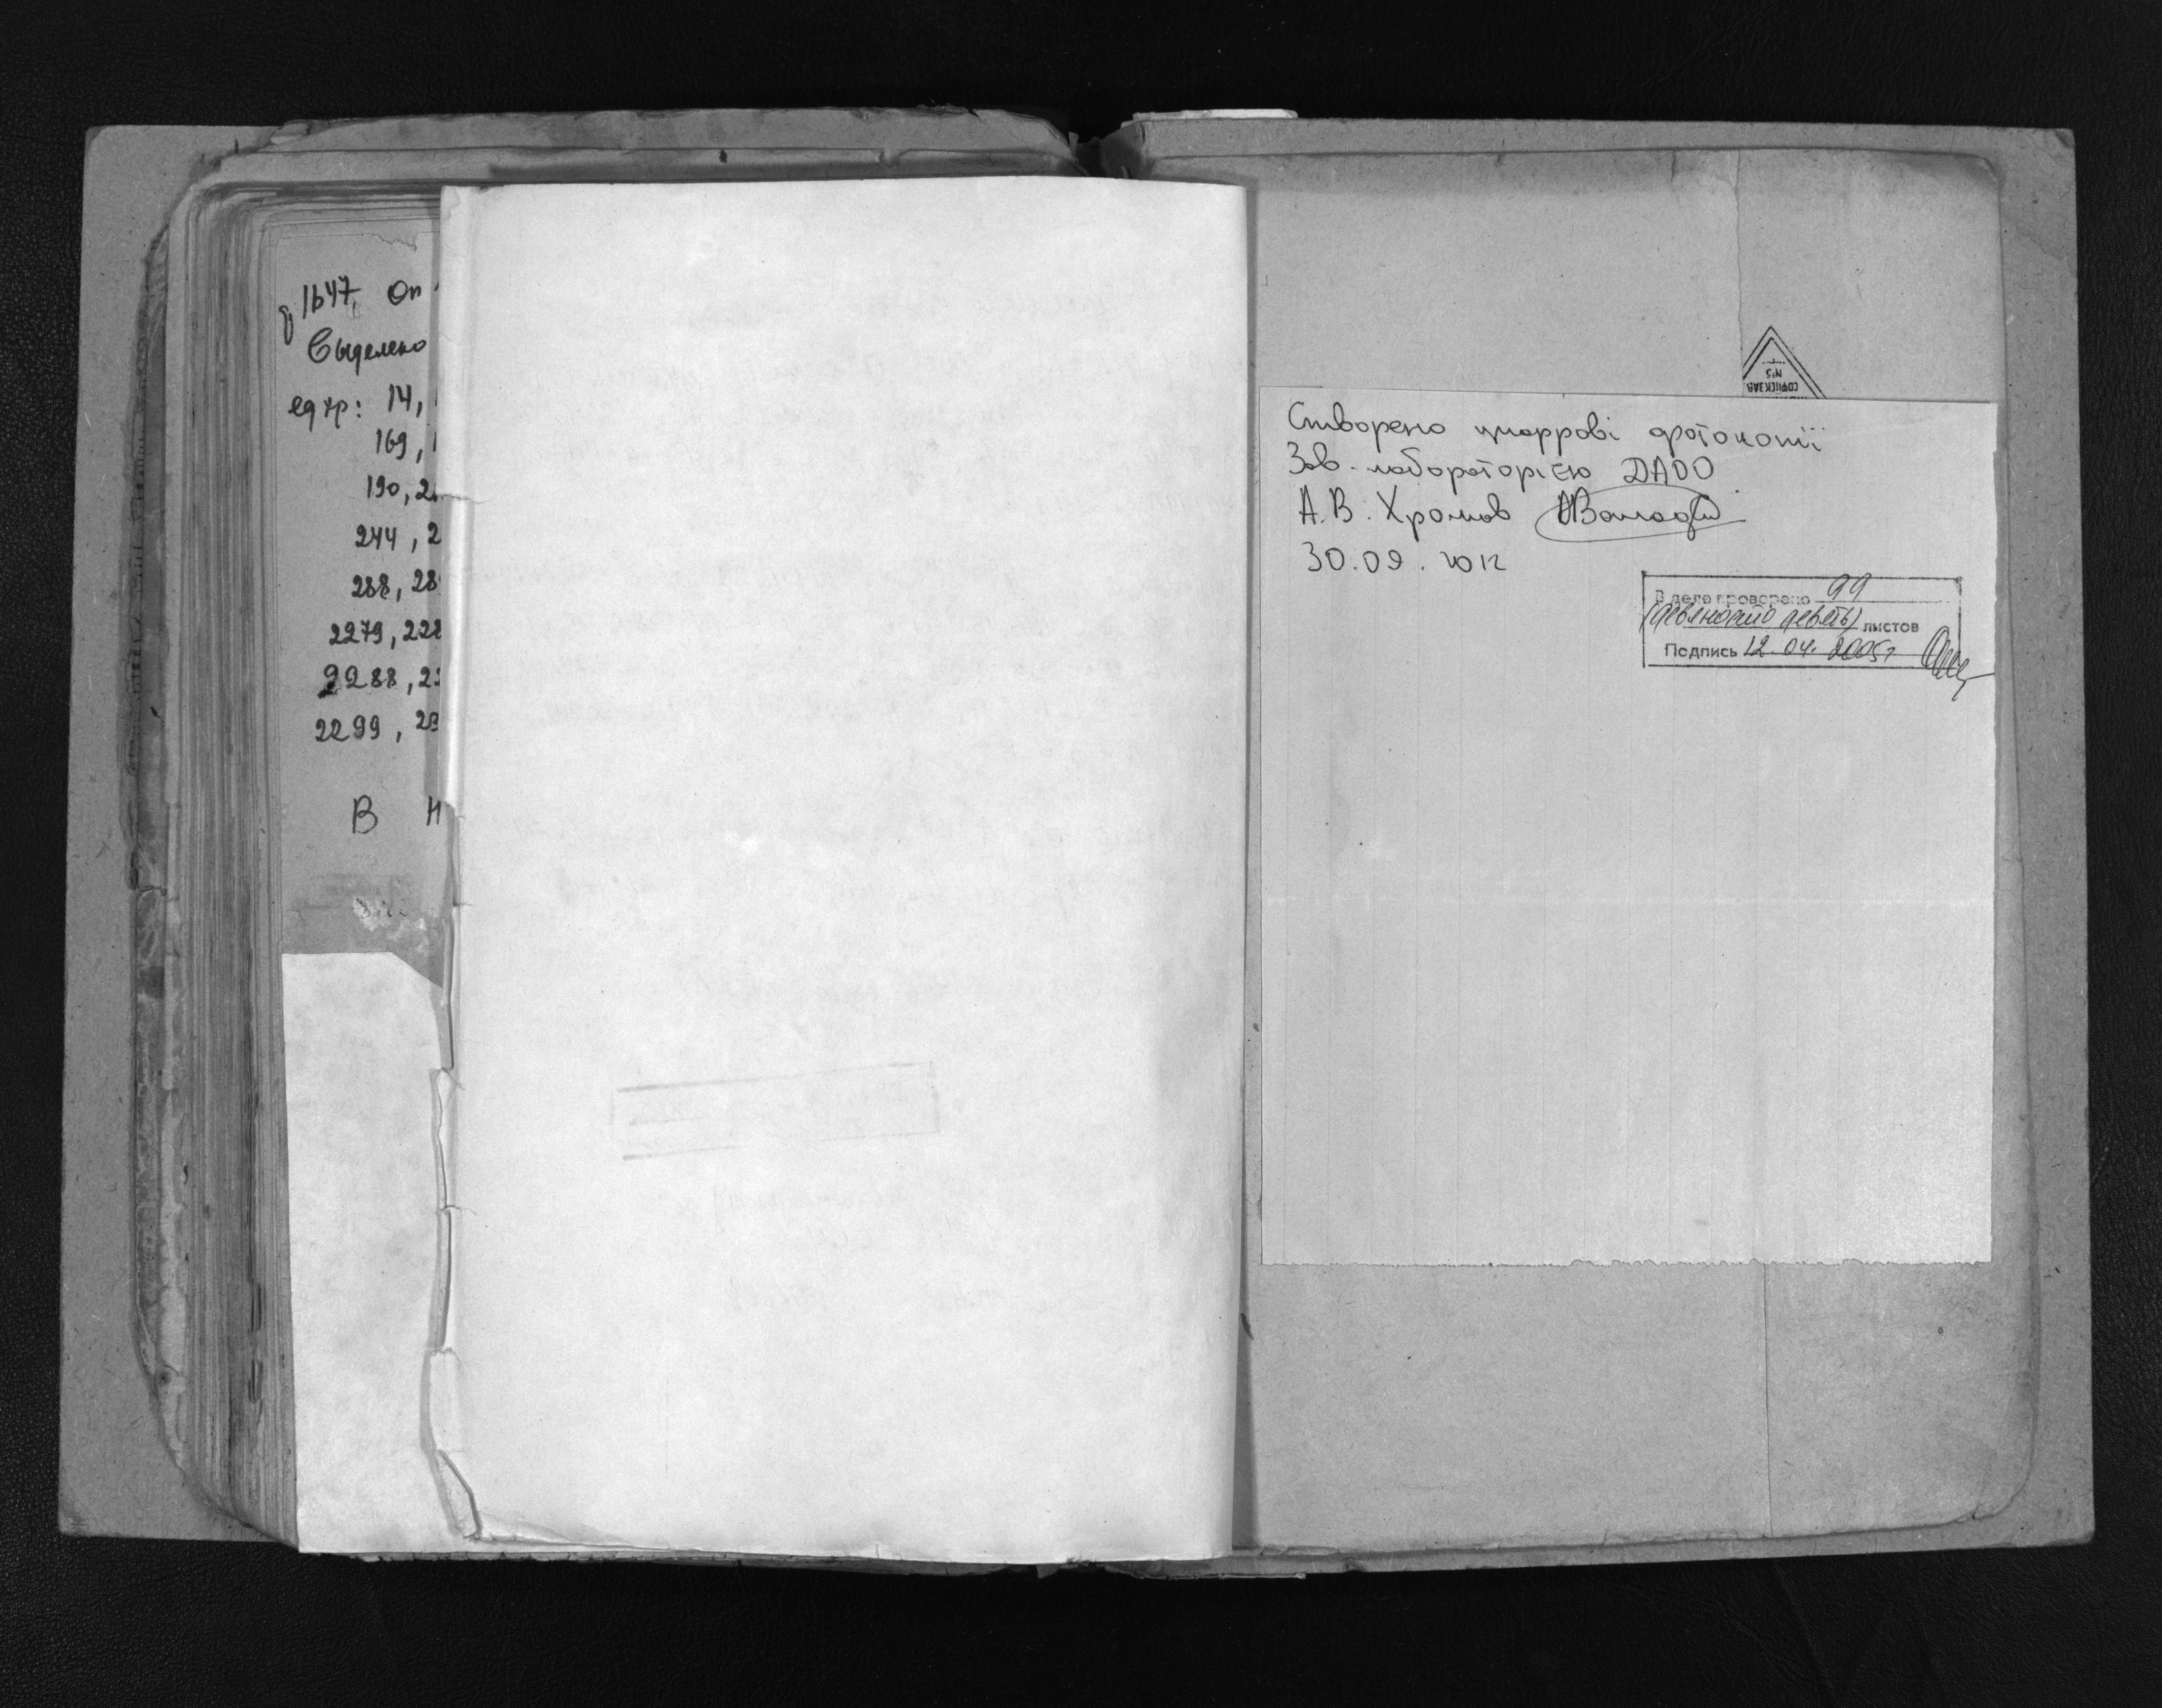 ф 1647, Оп
Выделено
ед хр: 14,
169, 1
190, 2
244, 2
288, 28
2279, 228
2288, 22
2299, 23
В Н
СОФІЕК.ЗАВ.
№5
Створено цифрові фотокопії
Зав. лабораторією ДАОО
А.В. Хромов
30.09.2012
В деле проверено 99
(девяносто девять) листов
Подпись 12.04.2005г